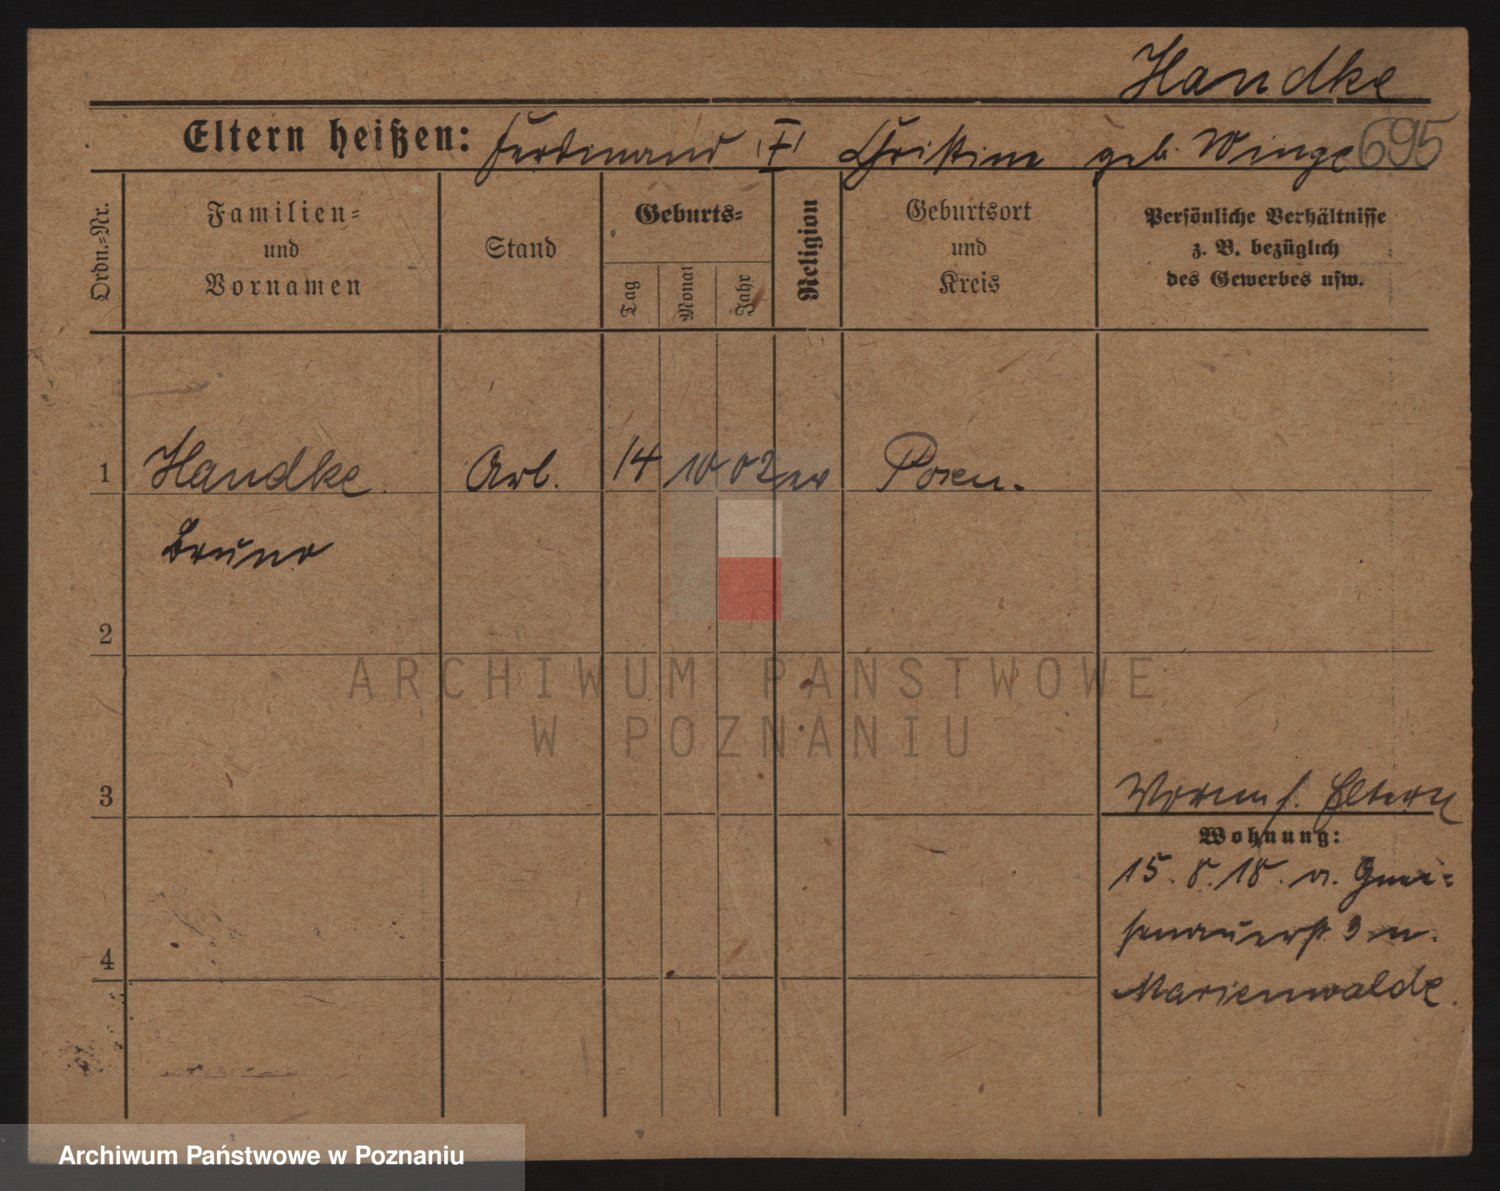 Handke
Eltern heißen: Ferdinand (I) Christine geb. Winge 695
Ordn.=Nr.
Familien=
und
Vornamen
Stand
Geburts=
Tag
Monat
Jahr
Religion
Geburtsort
und
Kreis
Persönliche Verhältnisse
z. B. bezüglich
des Gewerbes usw.
1 Handke. Arb. 14 10 02 ev Posen.
Bruno
2
ARCHIWUM PAŃSTWOWE
W POZNANIU
3
Vorum f. Eltern
Wohnung:
15. 8. 18. n. Gnei=
senauerstr 9 n.
4
Marienwalde.
Archiwum Państwowe w Poznaniu